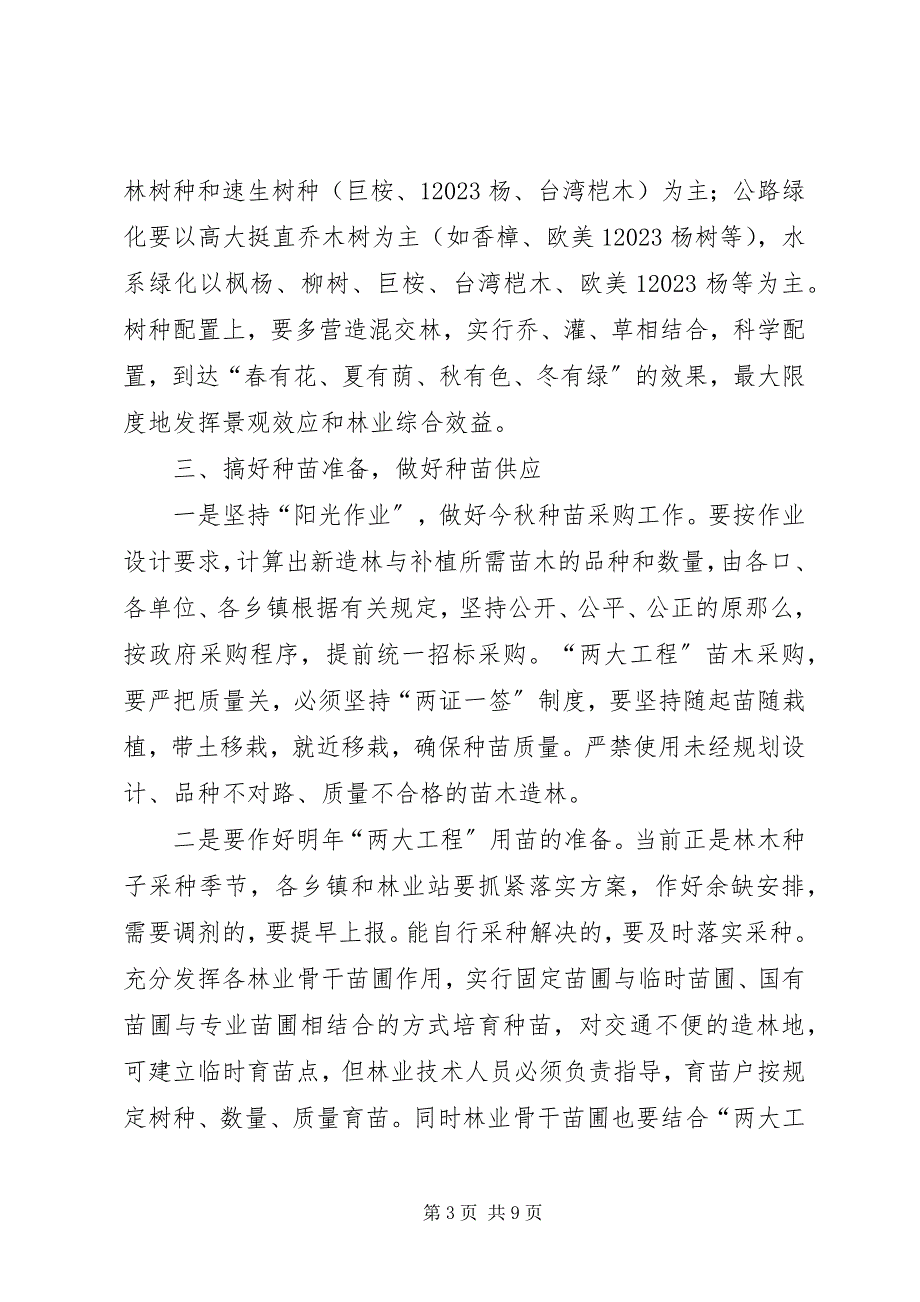 林树种和速生树种（巨桉、12023 杨、台湾桤木）为主；公路绿
化要以高大挺直乔木树为主（如香樟、欧美 12023 杨树等），水
系绿化以枫杨、柳树、巨桉、台湾桤木、欧美 12023 杨等为主。
树种配置上，要多营造混交林，实行乔、灌、草相结合，科学配
置，到达“春有花、夏有荫、秋有色、冬有绿〞的效果，最大限
度地发挥景观效应和林业综合效益。
三、搞好种苗准备，做好种苗供应
一是坚持“阳光作业〞，做好今秋种苗采购工作。要按作业
设计要求，计算出新造林与补植所需苗木的品种和数量，由各口、
各单位、各乡镇根据有关规定，坚持公开、公平、公正的原那么，
按政府采购程序，提前统一招标采购。“两大工程〞苗木采购，
要严把质量关，必须坚持“两证一签〞制度，要坚持随起苗随栽
植，带土移栽，就近移栽，确保种苗质量。严禁使用未经规划设
计、品种不对路、质量不合格的苗木造林。
二是要作好明年“两大工程〞用苗的准备。当前正是林木种
子采种季节，各乡镇和林业站要抓紧落实方案，作好余缺安排，
需要调剂的，要提早上报。能自行采种解决的，要及时落实采种。
充分发挥各林业骨干苗圃作用，实行固定苗圃与临时苗圃、国有
苗圃与专业苗圃相结合的方式培育种苗，对交通不便的造林地，
可建立临时育苗点，但林业技术人员必须负责指导，育苗户按规
定树种、数量、质量育苗。同时林业骨干苗圃也要结合“两大工
第 3 页 共 9 页